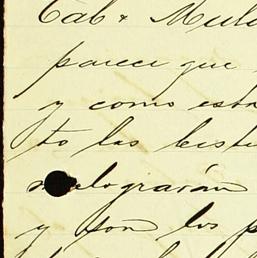 Cab & Mulo
parece que
y como esta
to las besti
malograrán
y son los p